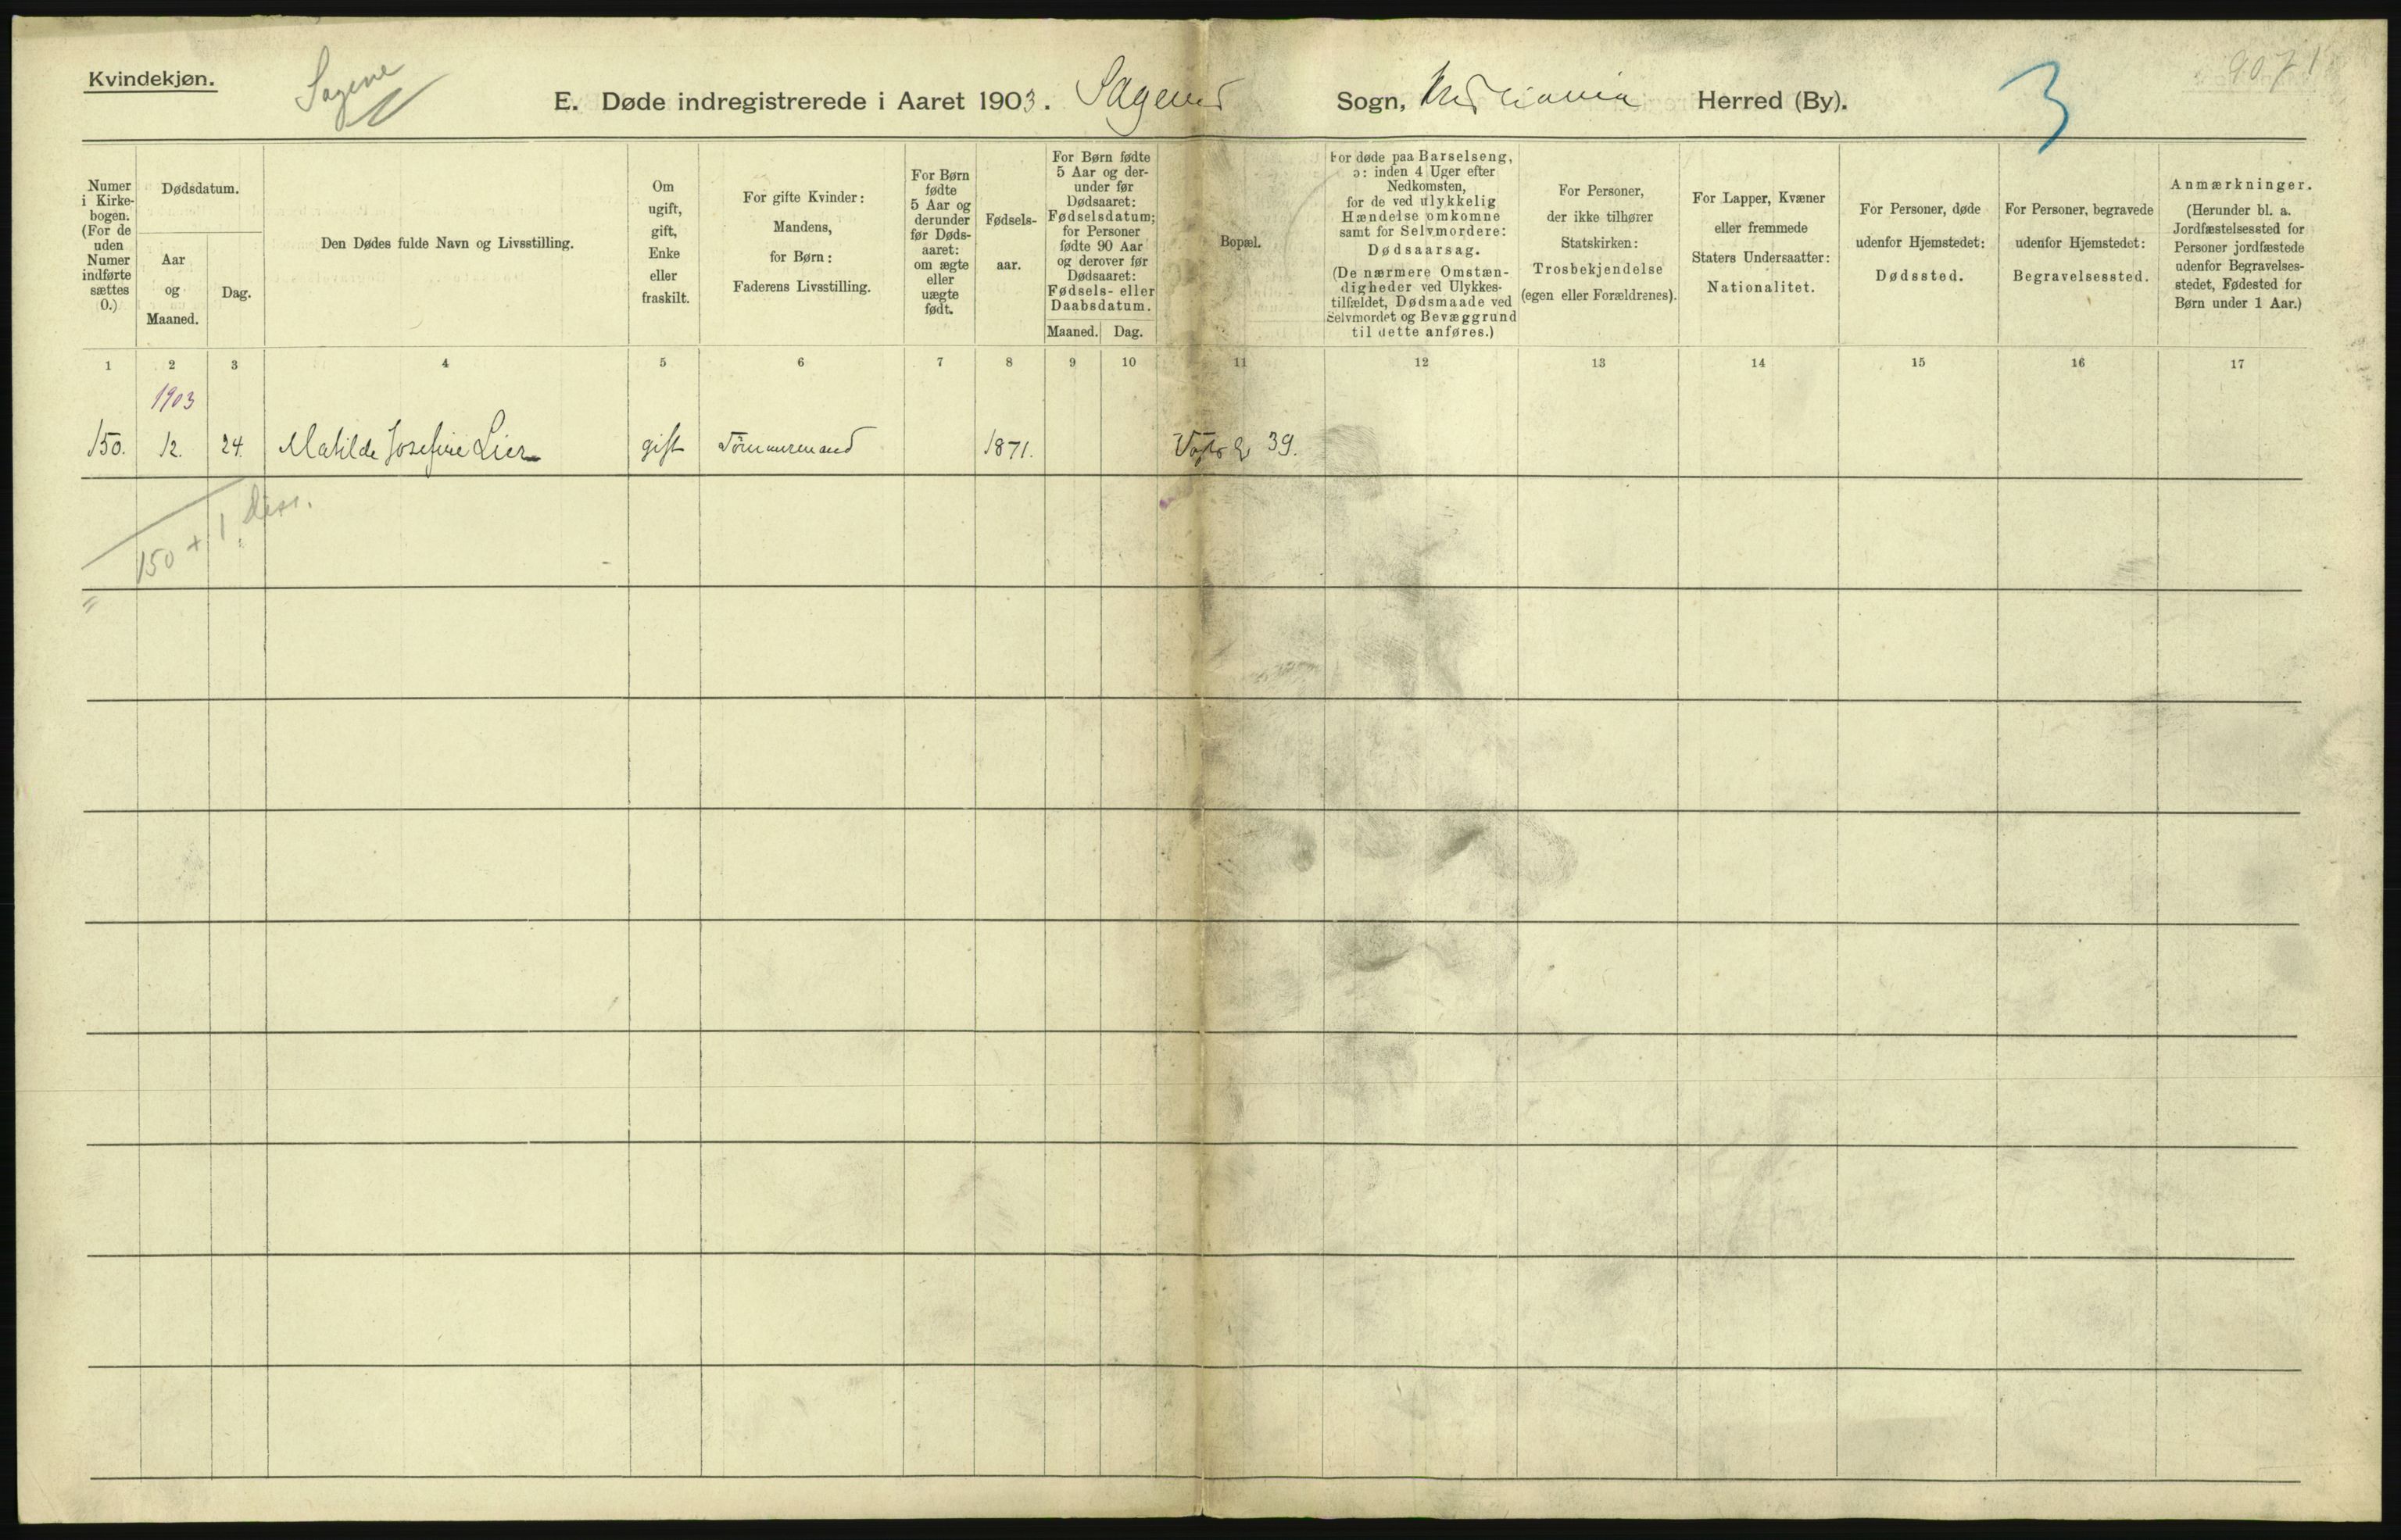 Kvindekjøn.
Sagene
E. Døde indregistrerede i Aaret 1903. Sagenes Sogn, Kristiania Herred (By).
3
9071
Numer i Kirkebogen. (For de uden Numer indførte sættes 0.)
Dødsdatum.
Aar og Maaned.
Dag.
Den Dødes fulde Navn og Livsstilling.
Om ugift, gift, Enke eller fraskilt.
For gifte Kvinder: Mandens, for Børn: Faderens Livsstilling.
For Børn fødte 5 Aar og derunder før Dødsaaret: om ægte eller uægte født.
Fødselsaar.
For Børn fødte 5 Aar og derunder før Dødsaaret: Fødselsdatum; for Personer fødte 90 Aar og derover før Dødsaaret: Fødsels- eller Daabsdatum.
Maaned. Dag.
Bopæl.
For døde paa Barselseng, ɔ: inden 4 Uger efter Nedkomsten, for de ved ulykkelig Hændelse omkomne samt for Selvmordere: Dødsaarsag. (De nærmere Omstændigheder ved Ulykkestilfældet, Dødsmaade ved Selvmordet og Bevæggrund til dette anføres.)
For Personer, der ikke tilhører Statskirken: Trosbekjendelse (egen eller Forældrenes).
For Lapper, Kvæner eller fremmede Staters Undersaatter: Nationalitet.
For Personer, døde udenfor Hjemstedet: Dødssted.
For Personer, begravede udenfor Hjemstedet: Begravelsessted.
Anmærkninger. (Herunder bl. a. Jordfæstelsessted for Personer jordfæstede udenfor Begravelsesstedet, Fødested for Børn under 1 Aar.)
1 2 3 4 5 6 7 8 9 10 11 12 13 14 15 16 17
1903
150. 12. 24. Matilde Josefine Lier gift Tömmermand 1871. 39.
150 + 1